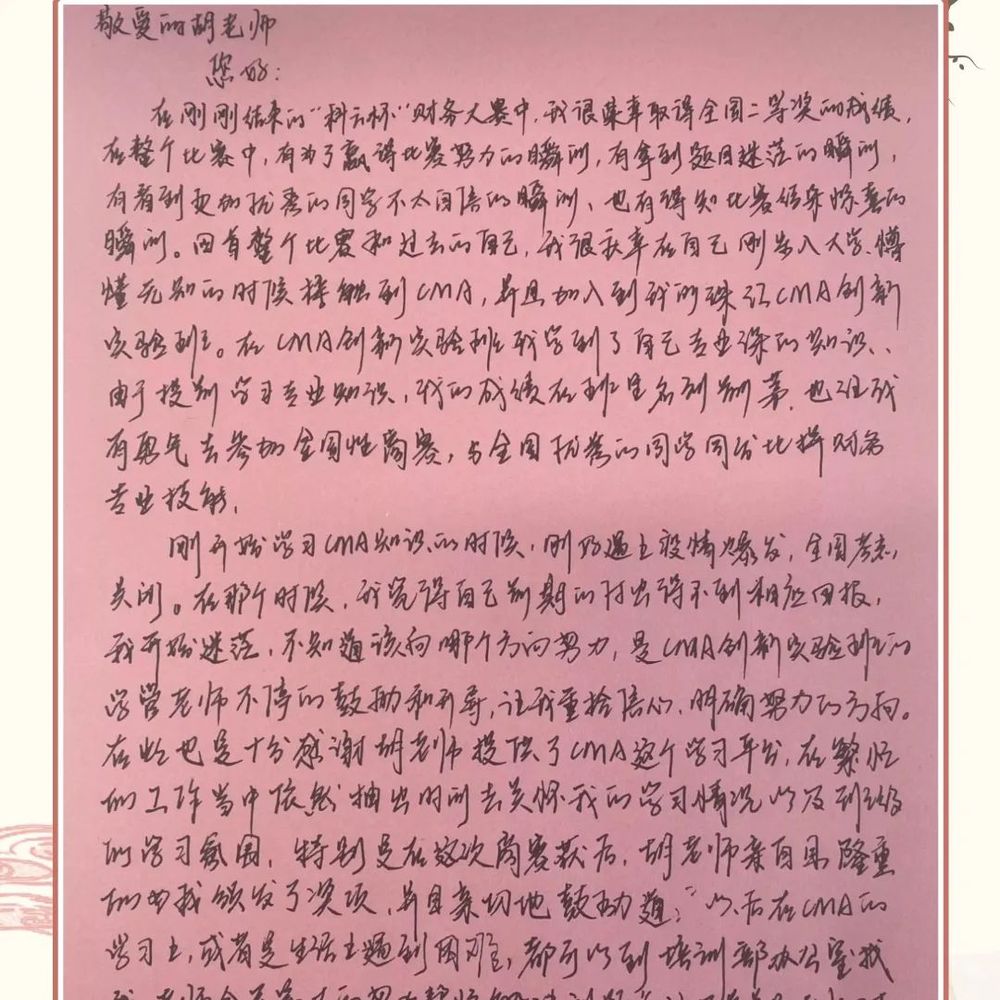 敬爱的胡老师
您好：
在刚刚结束的"科云杯"财务大赛中，我很荣幸取得全国二等奖的成绩，
在整个比赛中，有为了赢得比赛努力的瞬间，有拿到题目迷茫的瞬间，
有看到更加优秀的同学不太自信的瞬间、也有得知比赛结果惊喜的
瞬间。回首整个比赛和过去的自己，我很荣幸在自己刚步入大学、懵
懂无知的时候接触到CMA，并且加入到我们珠江CMA创新
实验班。在CMA创新实验班我学到了自己专业课的知识、
由于提前学习专业知识，我的成绩在班里名列前茅，也让我
有勇气去参加全国性商赛，与全国优秀的同学同台比拼财务
专业技能，
刚开始学习CMA知识的时候，刚好遇上疫情爆发，全国考点
关闭。在那个时候，我觉得自己前期的付出得不到相应回报，
我开始迷茫，不知道该向哪个方向努力，是CMA创新实验班的
学管老师不停的鼓励和开导，让我重拾信心，明确努力的方向。
在此也是十分感谢胡老师提供了CMA这个学习平台，在繁忙
的工作当中依然抽出时间去关怀我的学习情况以及班级
的学习氛围，特别是在这次商赛获后，胡老师亲自且隆重
的为我颁发了奖项，并且亲切地鼓励道："以后在CMA的
学习上，或者是生活上遇到困难，都可以到培训部办公室找